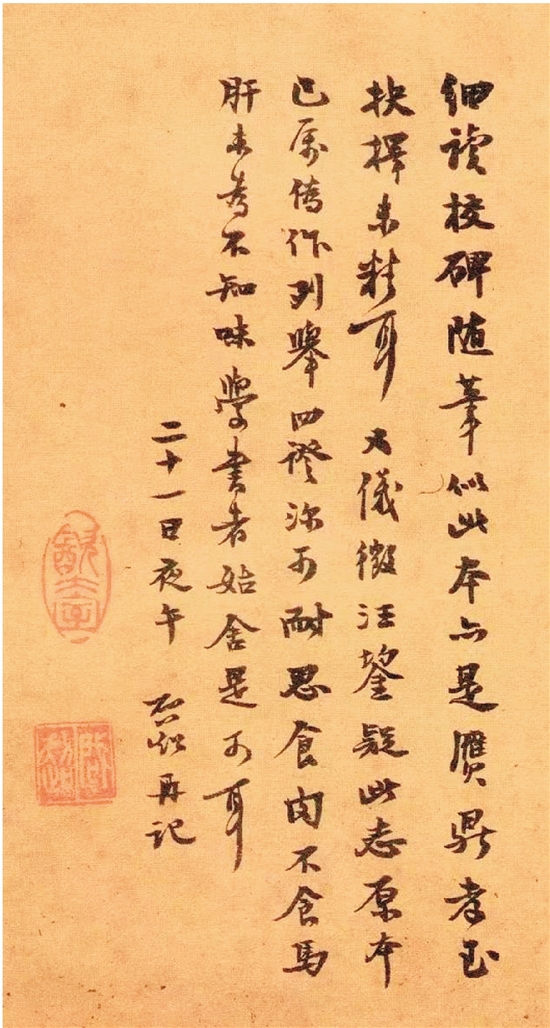 細讀校碑随筆似此本亦是贋鼎孝玉
抉擇未精耳又儀徵汪鋆疑此志原本
已属作列舉四證深可耐思食肉不食馬
肝未為不知味學書者始舍是可耳
二十一日夜午 再記